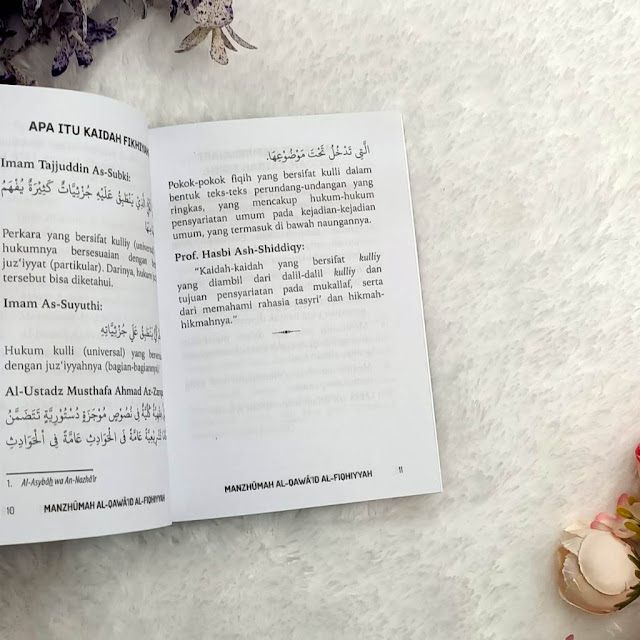 APA ITU KAIDAH FIKHIYYAH
Imam Tajjuddin As-Subki:
الَّذِيْ يَنْطَبِقُ عَلَيْهِ جُزْئِيَّاتٌ كَثِيْرَةٌ يُفْهَمُ
Perkara yang bersifat kulliy (universal)
hukumnya bersesuaian dengan
juz'iyyat (partikular). Darinya, hukum
tersebut bisa diketahui.
Imam As-Suyuthi:
يَنْطَبِقُ عَلَى جُزْئِيَّاتِهِ
Hukum kulli (universal) yang
dengan juz'iyyahnya (bagian-bagiannya)
Al-Ustadz Musthafa Ahmad Az-Zarqa
كُلِّيَّةٌ فِى نُصُوْصٍ مُوْجَزَةٍ دُسْتُوْرِيَّةٍ تَتَضَمَّنُ
عَامَّةً فِى الْحَوَادِثِ
1. Al-Asybâh wa An-Nazhâ'ir
10 MANZHÛMAH AL-QAWÂ'ID AL-FIQHIYYAH
الَّتِي تَدْخُلُ تَحْتَ مَوْضُوْعِهَا.
Pokok-pokok fiqih yang bersifat kulli dalam
bentuk teks-teks perundang-undangan yang
ringkas, yang mencakup hukum-hukum
pensyariatan umum pada kejadian-kejadian
umum, yang termasuk di bawah naungannya.
Prof. Hasbi Ash-Shiddiqy:
"Kaidah-kaidah yang bersifat kulliy
yang diambil dari dalil-dalil kulliy dan
tujuan pensyariatan pada mukallaf, serta
dari memahami rahasia tasyri' dan hikmah-
hikmahnya."
MANZHÛMAH AL-QAWÂ'ID AL-FIQHIYYAH 11